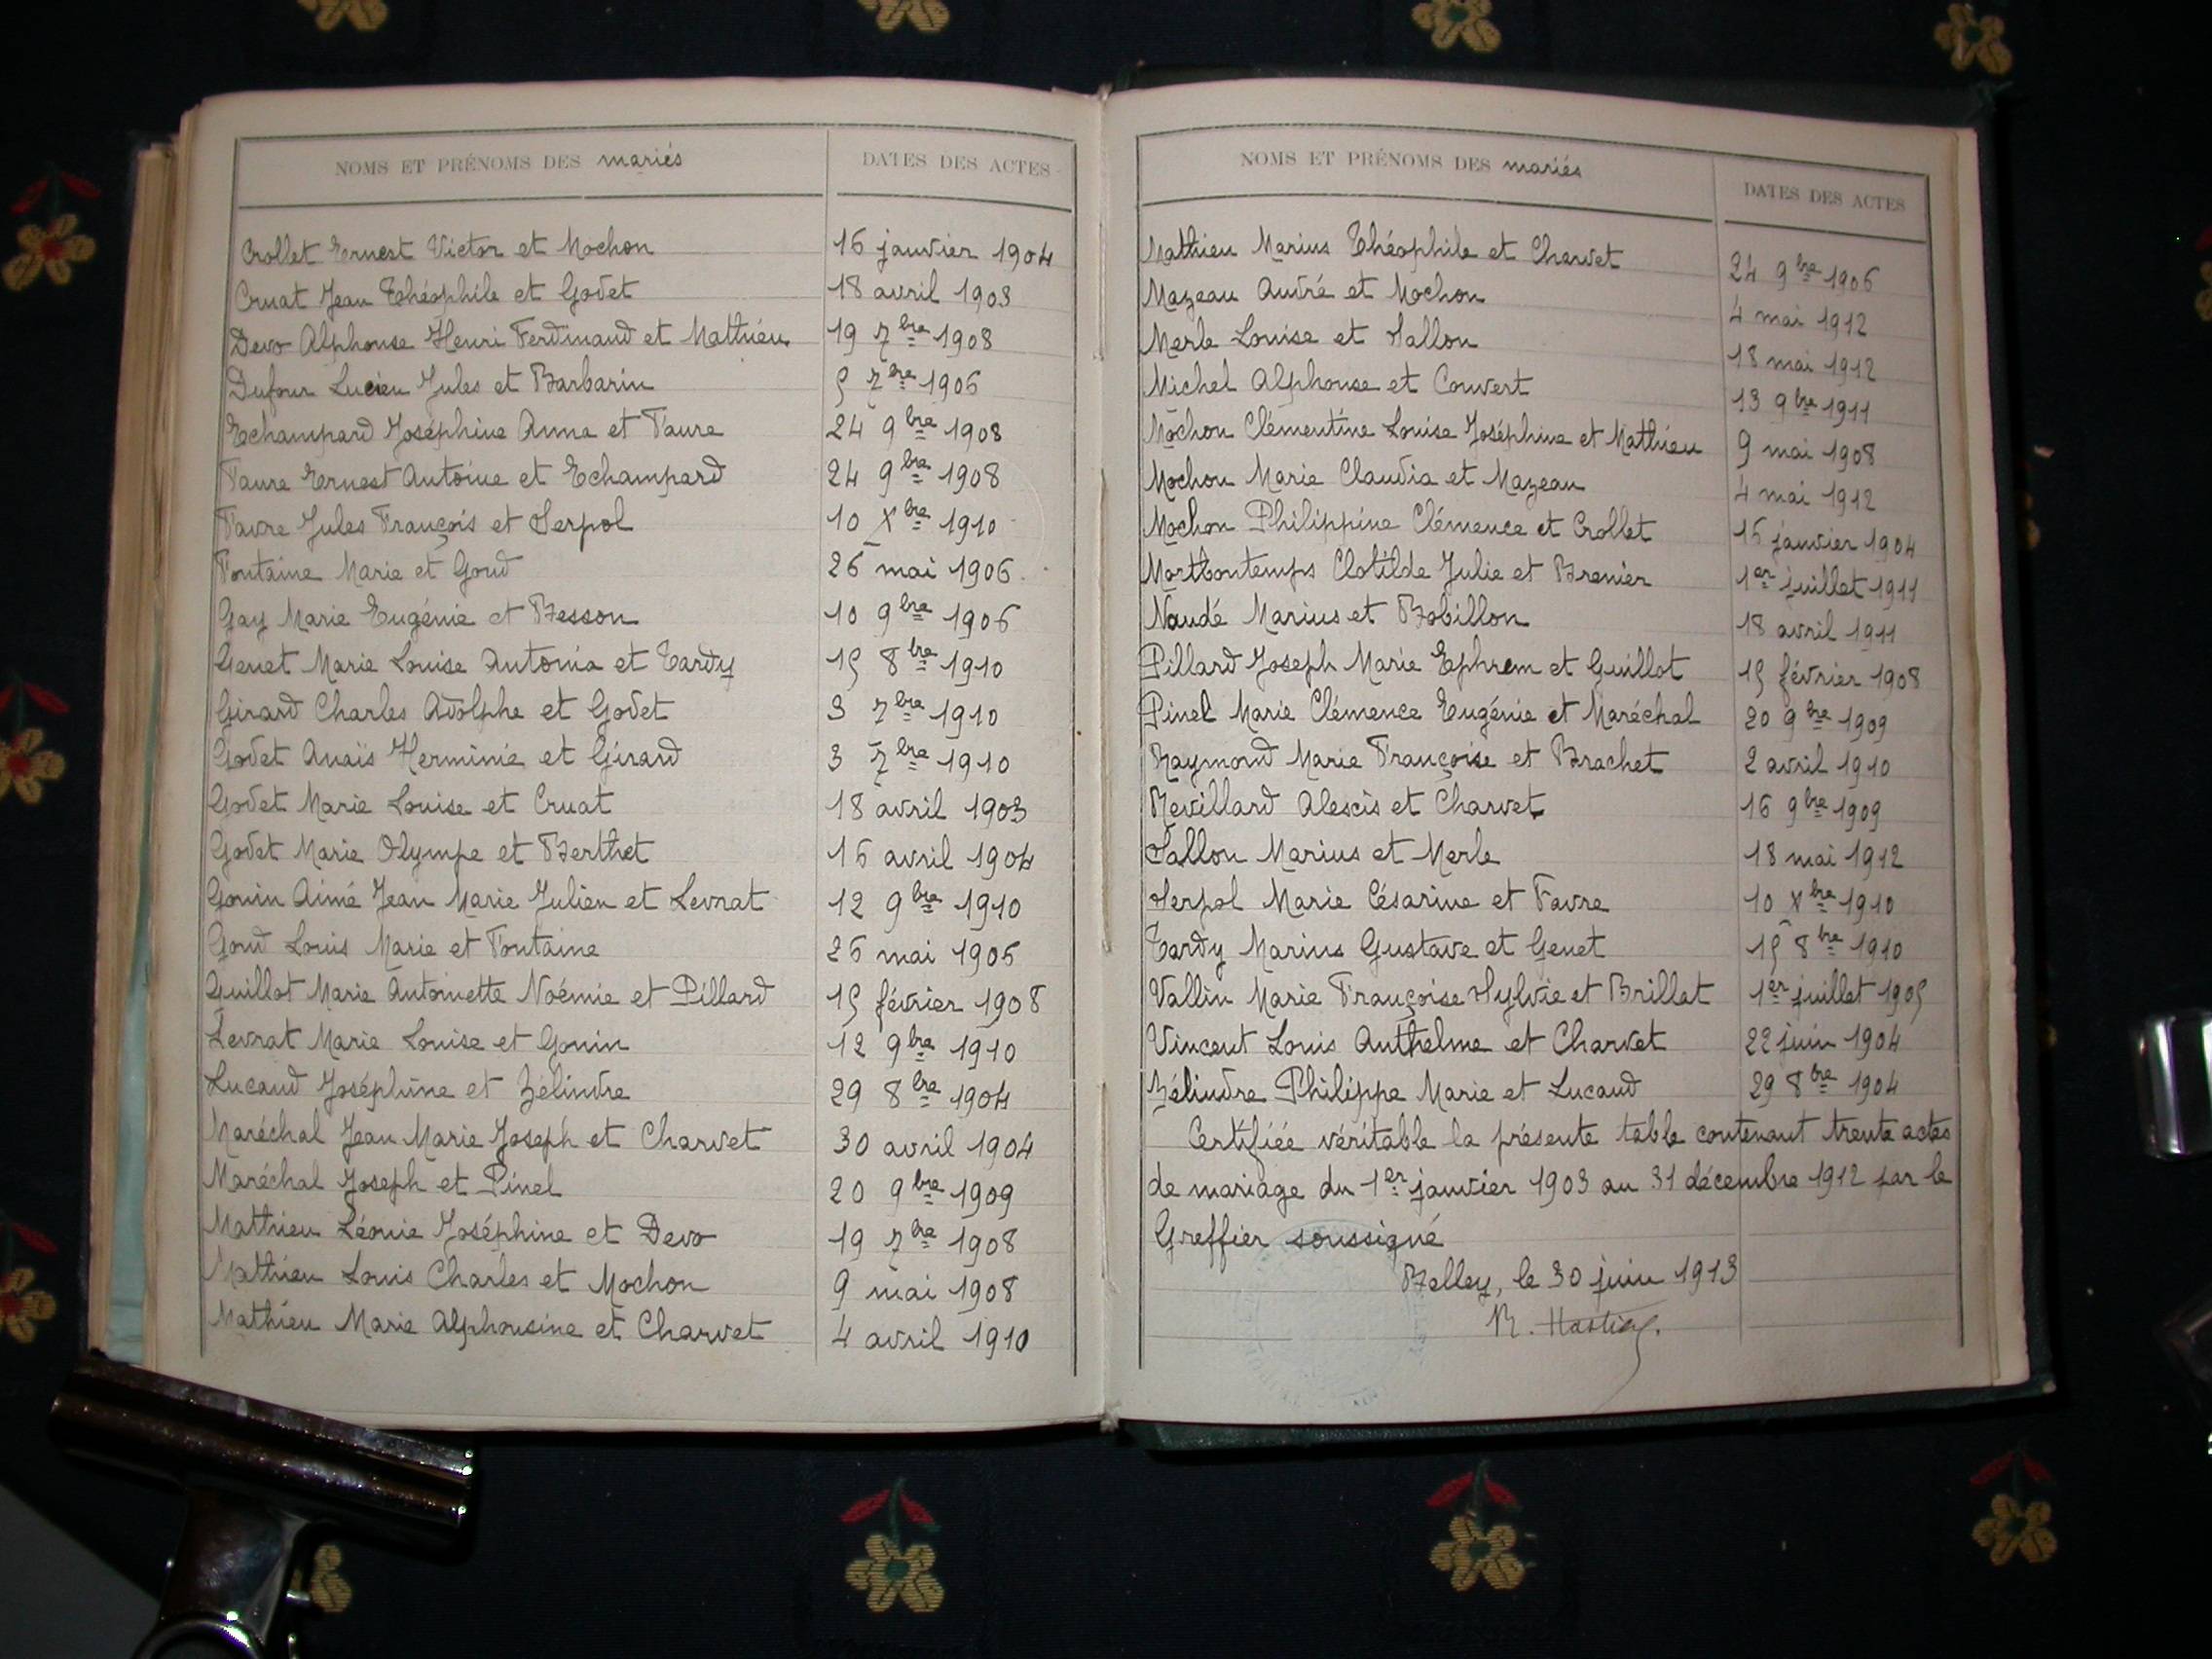 NOMS ET PRÉNOMS DES mariés DATES DES ACTES
Crollet Ernest Victor et Mochon 16 janvier 1904
Cruat Jean Théophile et Godet 18 avril 1903
Devo Alphonse Henri Ferdinand et Mathieu 19 7bre 1908
Dufour Lucien Jules et Barbarin 5 7bre 1906
Echampard Joséphine Anna et Faure 24 9bre 1908
Faure Ernest Antoine et Echampard 24 9bre 1908
Favre Jules François et Serpol 10 Xbre 1910
Fontaine Marie et Goud 26 mai 1906
Gay Marie Eugénie et Besson 10 9bre 1906
Genet Marie Louise Antonia et Tardy 15 8bre 1910
Girard Charles Adolphe et Godet 3 7bre 1910
Godet Anaïs Herminie et Girard 3 7bre 1910
Godet Marie Louise et Cruat 18 avril 1903
Godet Marie Olympe et Berthet 16 avril 1904
Gonin Aimé Jean Marie Julien et Levrat 12 9bre 1910
Goud Louis Marie et Fontaine 26 mai 1906
Guillot Marie Antoinette Noémie et Pillard 15 février 1908
Levrat Marie Louise et Gonin 12 9bre 1910
Lucaud Joséphine et Zélindre 29 8bre 1904
Maréchal Jean Marie Joseph et Charvet 30 avril 1904
Maréchal Joseph et Pinel 20 9bre 1909
Mathieu Léonie Joséphine et Devo 19 7bre 1908
Mathieu Louis Charles et Mochon 9 mai 1908
Mathieu Marie Alphonsine et Charvet 4 avril 1910
NOMS ET PRÉNOMS DES mariés DATES DES ACTES
Mathieu Marius Théophile et Charvet 24 9bre 1906
Mazeau André et Mochon 4 mai 1912
Merle Louise et Sallon 18 mai 1912
Michel Alphonse et Convert 13 9bre 1911
Mochon Clémentine Louise Joséphine et Mathieu 9 mai 1908
Mochon Marie Claudia et Mazeau 4 mai 1912
Mochon Philippine Clémence et Crollet 16 janvier 1904
Mortbontemps Clotilde Julie et Brenier 1er juillet 1911
Naudé Marius et Bobillon 18 avril 1911
Pillard Joseph Marie Ephrem et Guillot 15 février 1908
Pinel Marie Clémence Eugénie et Maréchal 20 9bre 1909
Raymond Marie Françoise et Brachet 2 avril 1910
Revillard Alexis et Charvet 16 9bre 1909
Sallon Marius et Merle 18 mai 1912
Serpol Marie Césarine et Favre 10 Xbre 1910
Tardy Marius Gustave et Genet 15 8bre 1910
Vallin Marie Françoise Sylvie et Brillat 1er juillet 1905
Vincent Louis Anthelme et Charvet 22 juin 1904
Zélindre Philippe Marie et Lucaud 29 8bre 1904
Certifiée véritable la présente table contenant trente actes
de mariage du 1er janvier 1903 au 31 décembre 1912 par le
Greffier soussigné
Belley, le 30 juin 1913